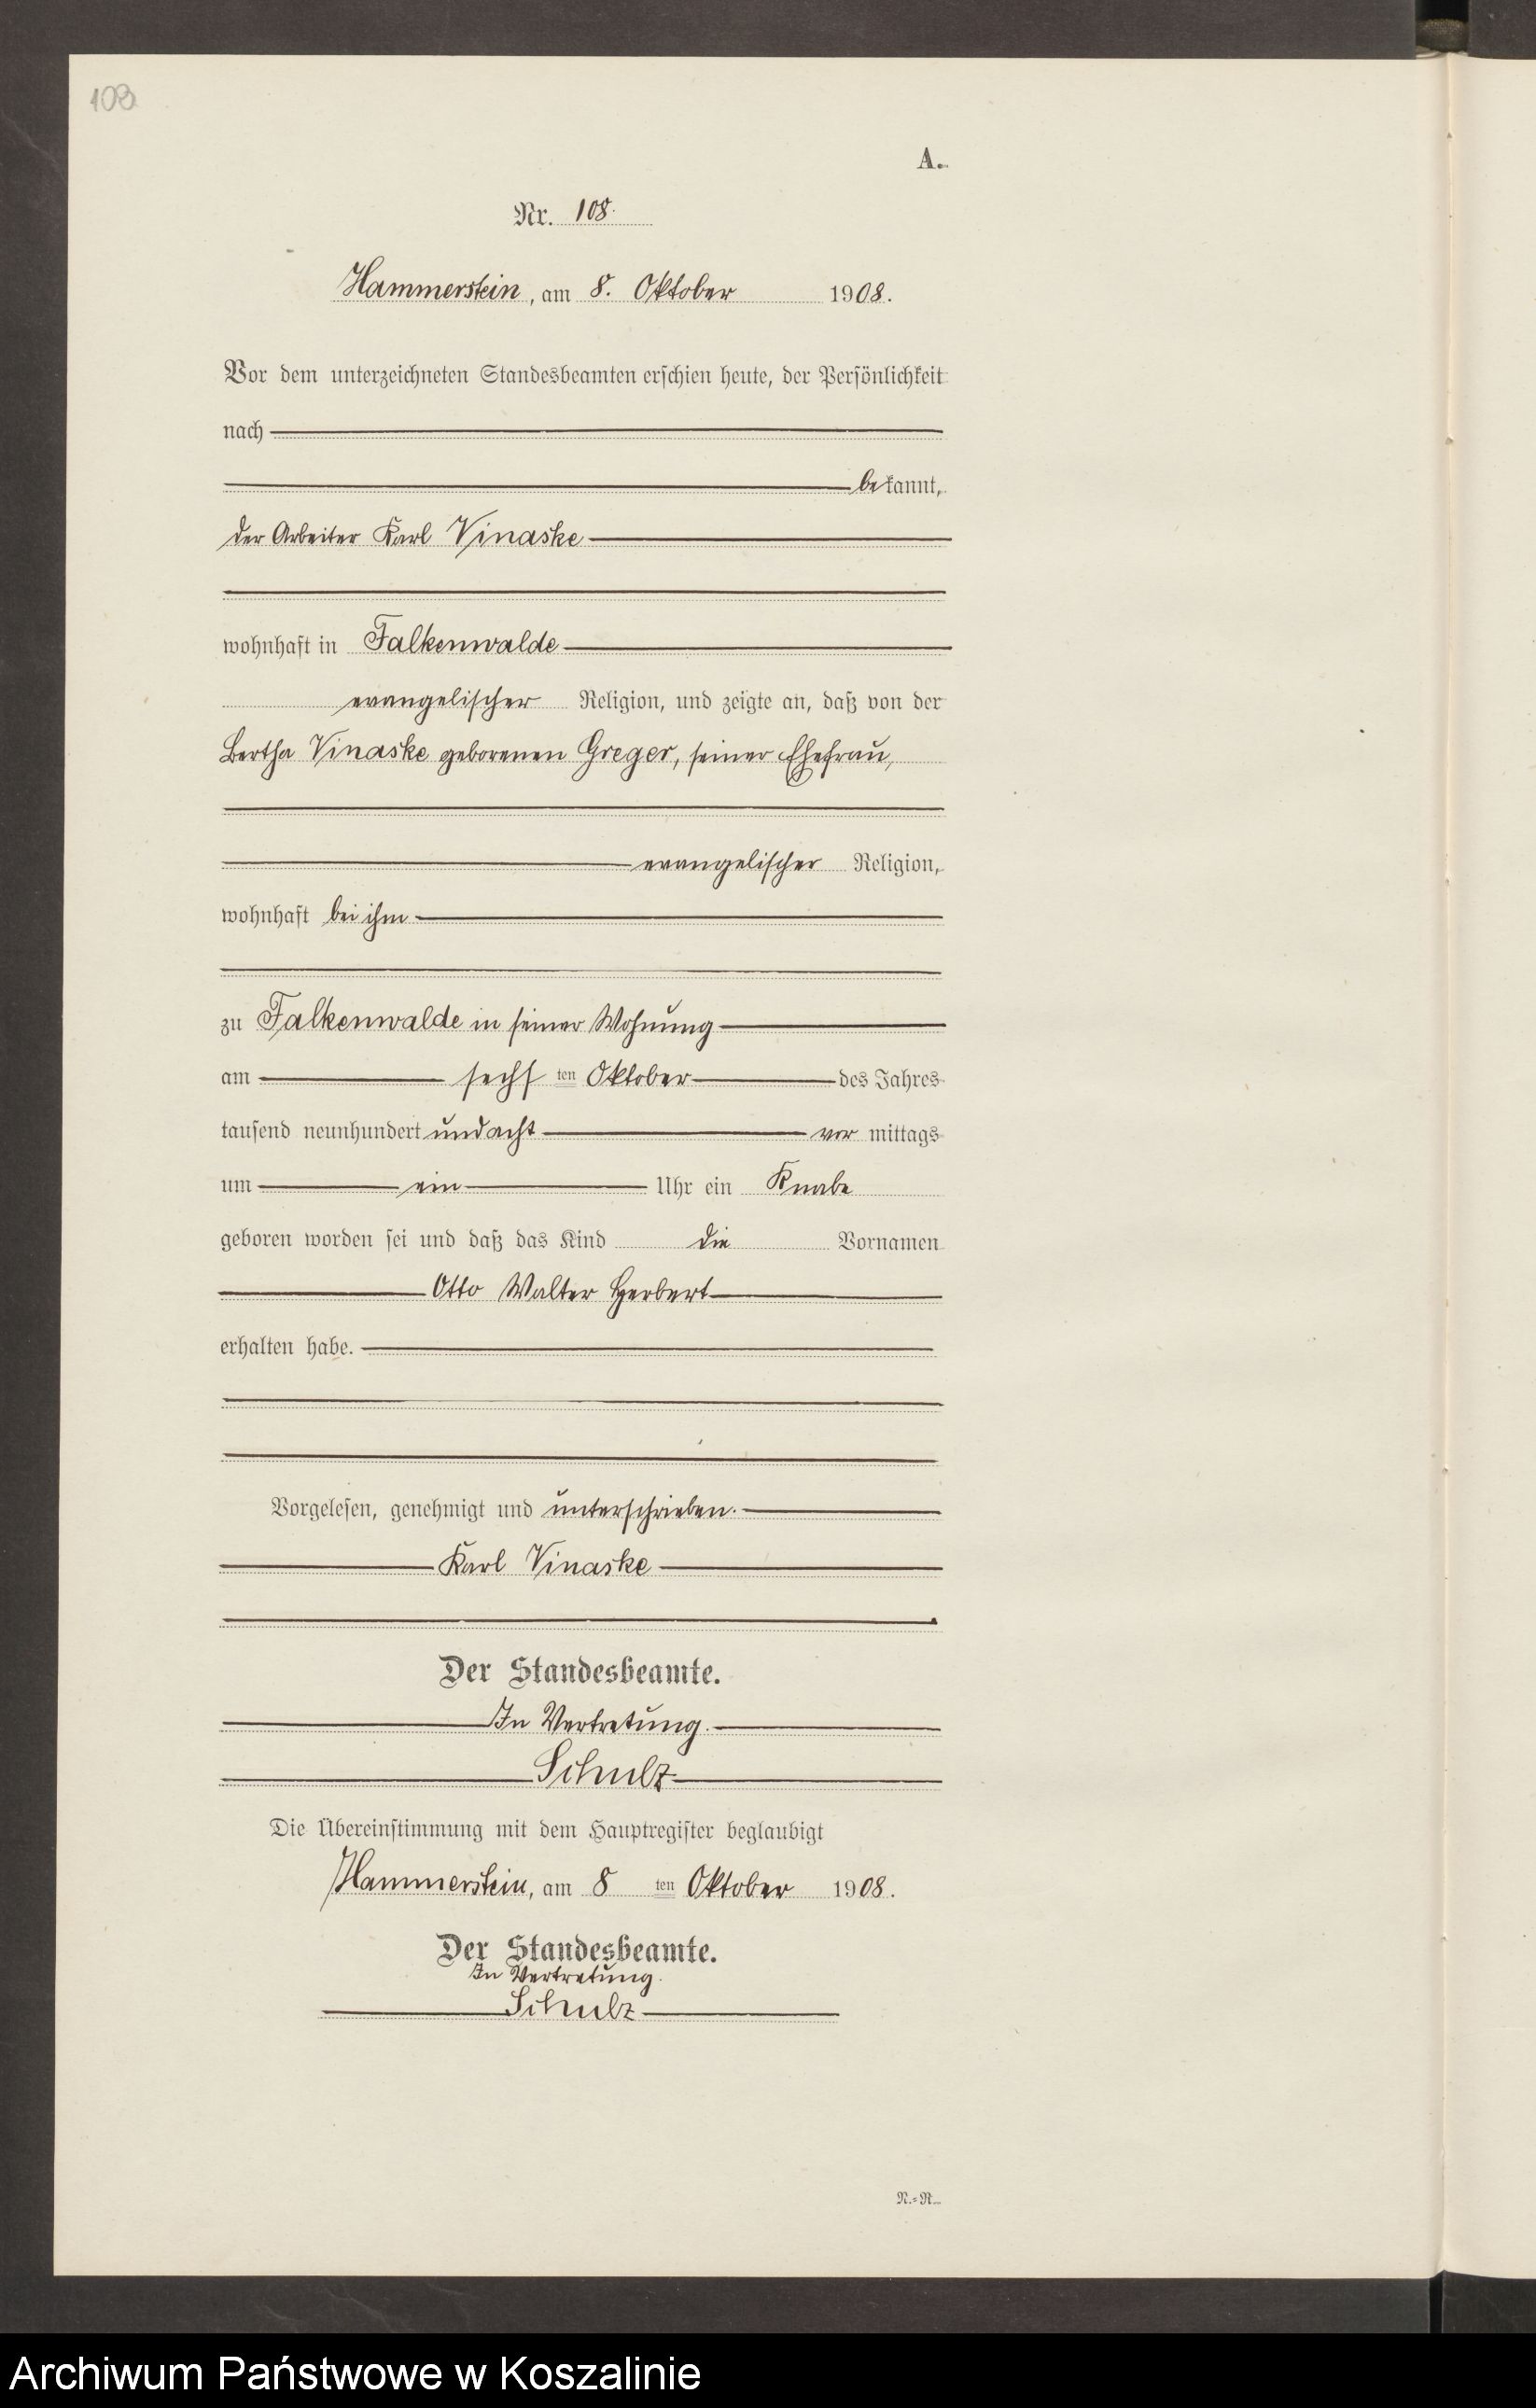 108
A.
Nr. 108.
Hammerstein, am 8. Oktober 1908.
Vor dem unterzeichneten Standesbeamten erschien heute, der Persönlichkeit
nach
bekannt,
der Arbeiter Karl Vinaske
wohnhaft in Falkenwalde
evangelischer Religion, und zeigte an, daß von der
Bertha Vinaske geborenen Greger, seiner Ehefrau,
evangelischer Religion,
wohnhaft bei ihm
zu Falkenwalde in seiner Wohnung
am sechsten Oktober des Jahres
tausend neunhundert und acht vor mittags
um ein Uhr ein Knabe
geboren worden sei und daß das Kind die Vornamen
Otto Walter Herbert
erhalten habe.
Vorgelesen, genehmigt und unterschrieben.
Karl Vinaske
Der Standesbeamte.
In Vertretung.
Schulz
Die Übereinstimmung mit dem Hauptregister beglaubigt
Hammerstein, am 8 ten Oktober 1908.
Der Standesbeamte.
In Vertretung.
Schulz
N.=R.
Archiwum Państwowe w Koszalinie